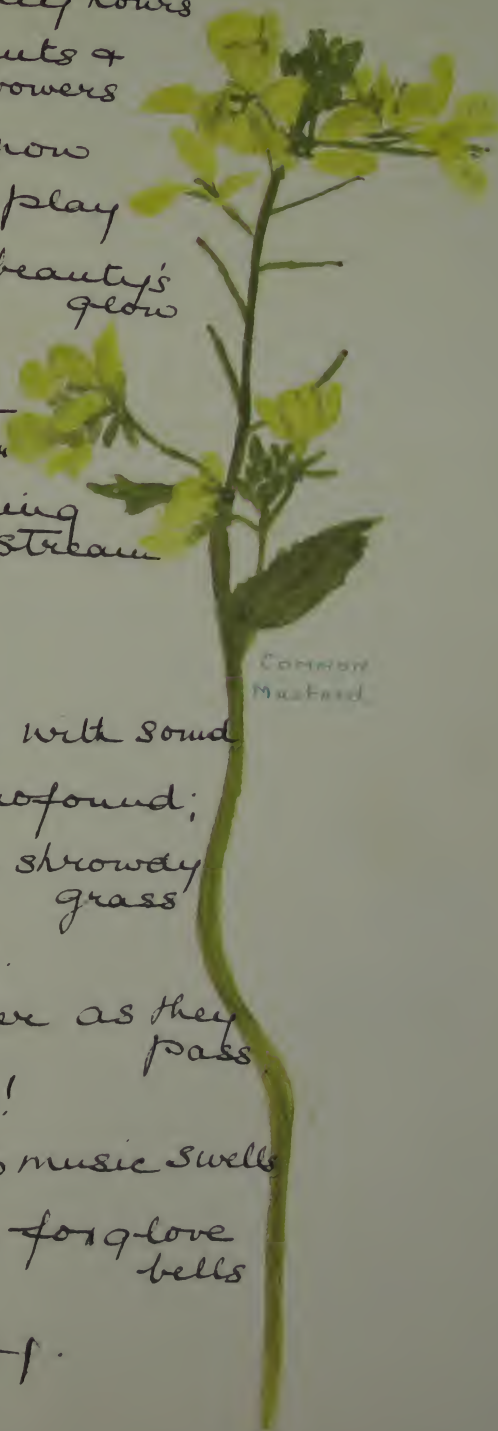 hours
&
owers
now
play
beauty's
glow
ing
stream
Common
Mustard
with sound
ofound;
shrowdy
grass
as they
pass
!
music swells
foxglove
bells